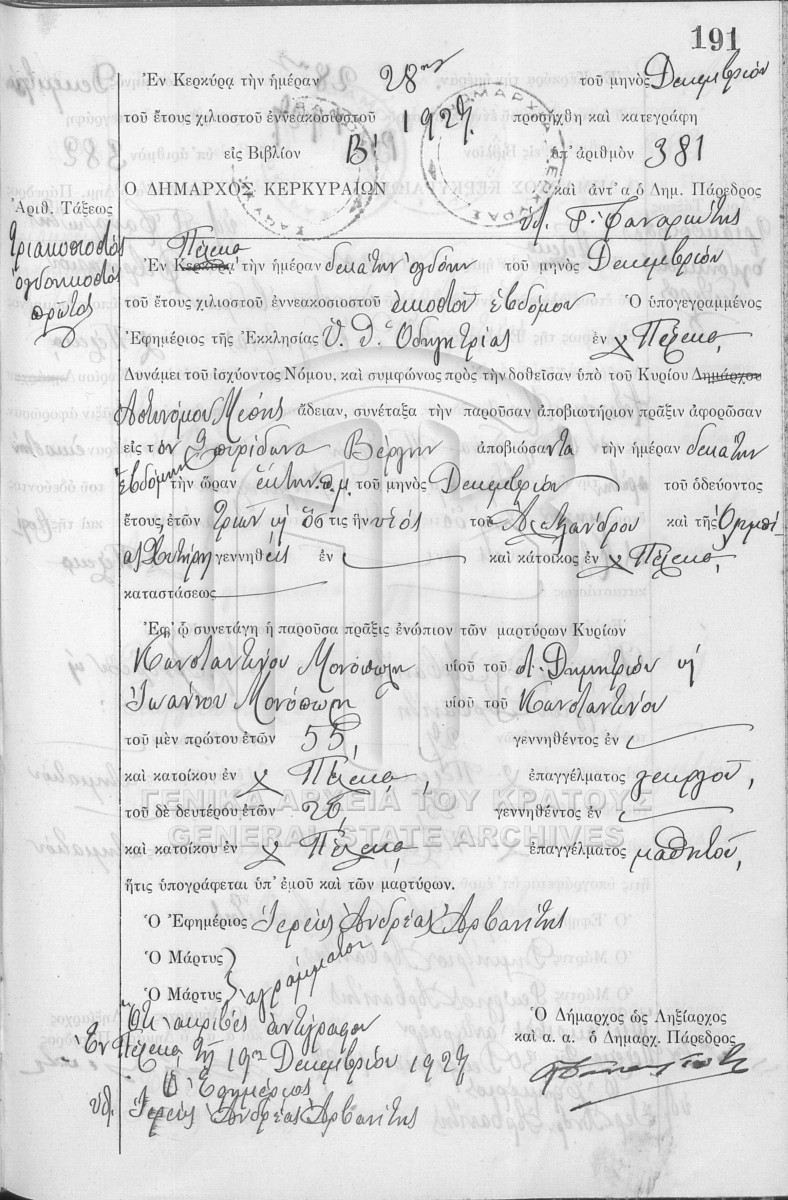 191
Ἐν Κερκύρᾳ τὴν ἡμέραν 28ην τοῦ μηνὸς Δεκεμβρίου
τοῦ ἔτους χιλιοστοῦ ἐννεακοσιοστοῦ 1927. προσήχθη καὶ κατεγράφη
εἰς Βιβλίον Β' ὑπ' ἀριθμὸν 381
Ὁ ΔΗΜΑΡΧΟΣ ΚΕΡΚΥΡΑΙΩΝ καὶ ἀντ' α ὁ Δημ. Πάρεδρος
Ἀριθ. Τάξεως
τριακοσιοστὸς
ὀγδοηκοστὸς
πρῶτος
Πέλεκα
Ἐν Κερκύρᾳ τὴν ἡμέραν δεκάτην ὀγδόην τοῦ μηνὸς Δεκεμβρίου
τοῦ ἔτους χιλιοστοῦ ἐννεακοσιοστοῦ εἰκοστοῦ ἑβδόμου Ὁ ὑπογεγραμμένος
Ἐφημέριος τῆς Ἐκκλησίας Ὑ. Θ. Ὁδηγητρίας ἐν χ Πέλεκα,
Δυνάμει τοῦ ἰσχύοντος Νόμου, καὶ συμφώνως πρὸς τὴν δοθεῖσαν ὑπὸ τοῦ Κυρίου Δημάρχου
Ἀστυνόμου Μέσης ἄδειαν, συνέταξα τὴν παροῦσαν ἀποβιωτήριον πρᾶξιν ἀφορῶσαν
εἰς τὸν Σπυρίδωνα Βέργην ἀποβιώσαντα τὴν ἡμέραν δεκάτην
ἑβδόμην τὴν ὥραν ἕκτην π.μ. τοῦ μηνὸς Δεκεμβρίου τοῦ ὁδεύοντος
ἔτους, ἐτῶν τριῶν ὅστις ἦν υἱὸς τοῦ Ἀλεξάνδρου καὶ τῆς Ὀλυμπί-
ας Σωτήρη γεννηθεὶς ἐν καὶ κάτοικος ἐν χ Πέλεκα,
καταστάσεως
Ἐφ' ᾧ συνετάγη ἡ παροῦσα πρᾶξις ἐνώπιον τῶν μαρτύρων Κυρίων
Κωνσταντίνου Μονόπωλη υἱοῦ τοῦ Δημητρίου ἡ
Ἰωάννου Μονόπωλη υἱοῦ τοῦ Κωνσταντίνου
τοῦ μὲν πρώτου ἐτῶν 55, γεννηθέντος ἐν
καὶ κατοίκου ἐν χ Πέλεκα, ἐπαγγέλματος γεωργοῦ,
τοῦ δὲ δευτέρου ἐτῶν 20, γεννηθέντος ἐν
καὶ κατοίκου ἐν χ Πέλεκα, ἐπαγγέλματος μαθητοῦ,
ἥτις ὑπογράφεται ὑπ' ἐμοῦ καὶ τῶν μαρτύρων.
Ὁ Ἐφημέριος Ἱερεὺς Ἀνδρέας Ἀρβανίτης
Ὁ Μάρτυς
Ὁ Μάρτυς ἀγράμματοι
Ὅτι ἀκριβὲς ἀντίγραφον
Ἐν Πέλεκα τῇ 19ῃ Δεκεμβρίου 1927
Ὁ Ἐφημέριος
Ἱερεὺς Ἀνδρέας Ἀρβανίτης
Ὁ Δήμαρχος ὡς Ληξίαρχος
καὶ α. α. ὁ Δημαρχ. Πάρεδρος
ΓΕΝΙΚΑ ΑΡΧΕΙΑ ΤΟΥ ΚΡΑΤΟΥΣ
GENERAL STATE ARCHIVES